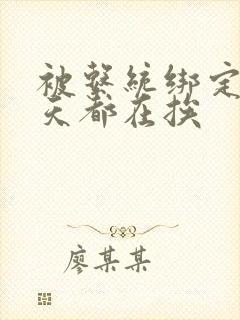 被系统绑定
天都在挨
廖某某